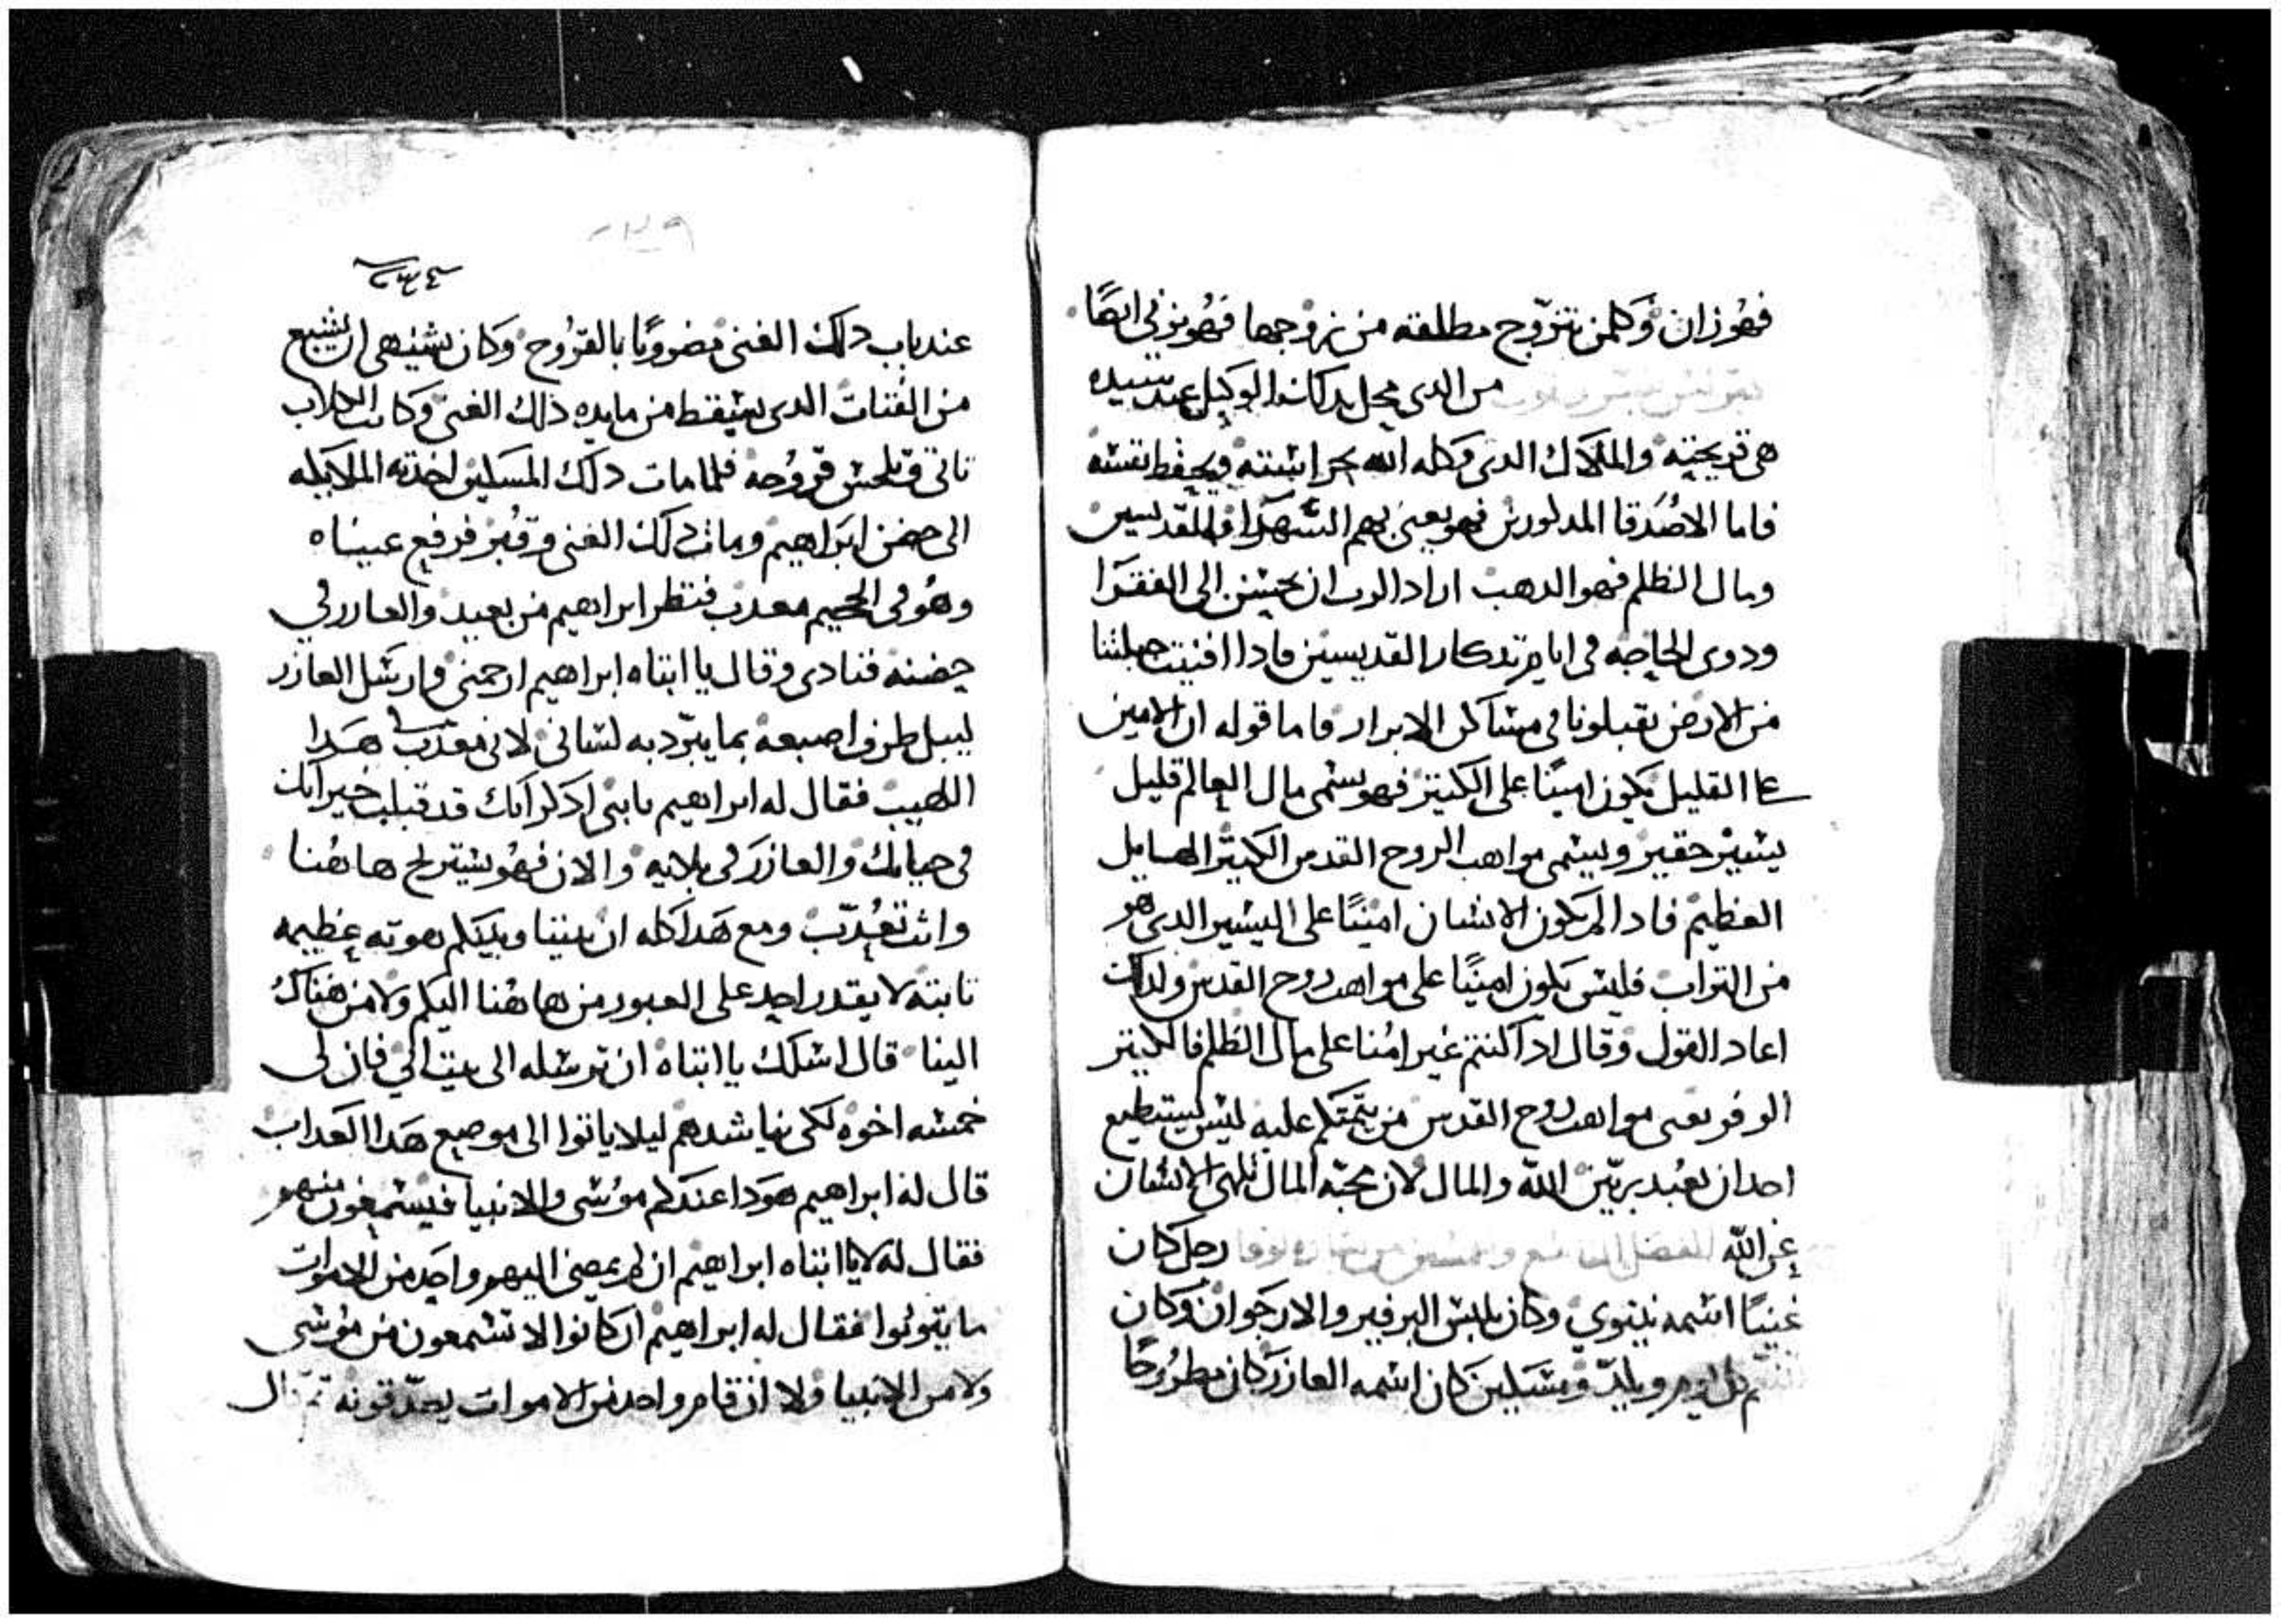 فهو زان وكلمن تتزوج مطلقته من زوجها فهو يزني ايضًا
من الدي محل بدكان الوكيل عند سيده
هي قريحته والملاك الدي وكله الله بحراسته ويحفظ نفسه
فاما الاصدقا المدكورين فهو يعني بهم الشهدا والقديسين
ومال الظلم فهو الدهب اراد الرب ان نحسن الى الفقرا
ودوى الحاجه في ايام تدكار القديسين فادا افنيت جبلتنا
من الارض يقبلونا في مساكن الابرار فاما قوله ان الامين
على القليل يكون امينًا على الكتير فهو يسمى مال العالم قليل
يسير حقير ويسمى مواهب الروح القدس الكتير الهايل
العظيم فادا لم يكون الانسان امينًا على اليسير الدي هو
من التراب فليس يكون امينًا على مواهب روح القدس ولدلك
اعاد القول وقال ادا كنتم غير امنا على مال الظلم فالكتير
الوفر يعنى مواهب روح القدس من يتمنكم عليه ليس يستطيع
احد ان يعبد ربّين الله والمال لان محبّة المال تلهى الانسان
عن الله رجل كان
غنيًا اسمه نينوي وكان يلبس البرفير والارجوان وكان
ومسكين كان اسمه العازر كان مطروحًا
٢٣٤
عند باب دلك الغني مضروبًا بالقروح وكان يشتهي ان يشبع
من الفتات الدى يسقط من مايده ذلك الغنى وكانت الكلاب
تاتى وتلحس قروحه فلما مات دلك المسكين اخدته الملايكه
الى حضن ابراهيم ومات دلك الغنى وقبر فرفع عيناه
وهو في الجحيم معدب فنظر ابراهيم من بعيد والعازر في
حضنه فنادى وقال يا ابتاه ابراهيم ارحمنى وارسل العازر
ليبل طرف اصبعه بما يبرد به لسانى لانى معدب هدا
اللهيب فقال له ابراهيم يابنى ادكر انك قد قبلت خيراتك
في حياتك والعازر في بلاته والان فهو يستريح هاهنا
وانت تعدّب ومع هدا كله ان بيننا وبينكم هوته عظيمه
تابته لا يقدر احد على العبور من هاهنا اليكم ولا من هناك
الينا قال اسلك يا ابتاه ان ترسله الى بيت ابي فان لى
خمسه اخوه لكى يناشدهم ليلا ياتوا الى موضع هدا العداب
قال له ابراهيم هودا عندكم موسى والانبيا فيسمعون منهم
فقال له لا يا ابتاه ابراهيم ان لم يمضى اليهم واحد من الاموات
ما يتوبوا فقال له ابراهيم ان كانوا لا تسمعون من موسى
ولا من الانبيا ولا ان قام واحد من الاموات يصدّقونه